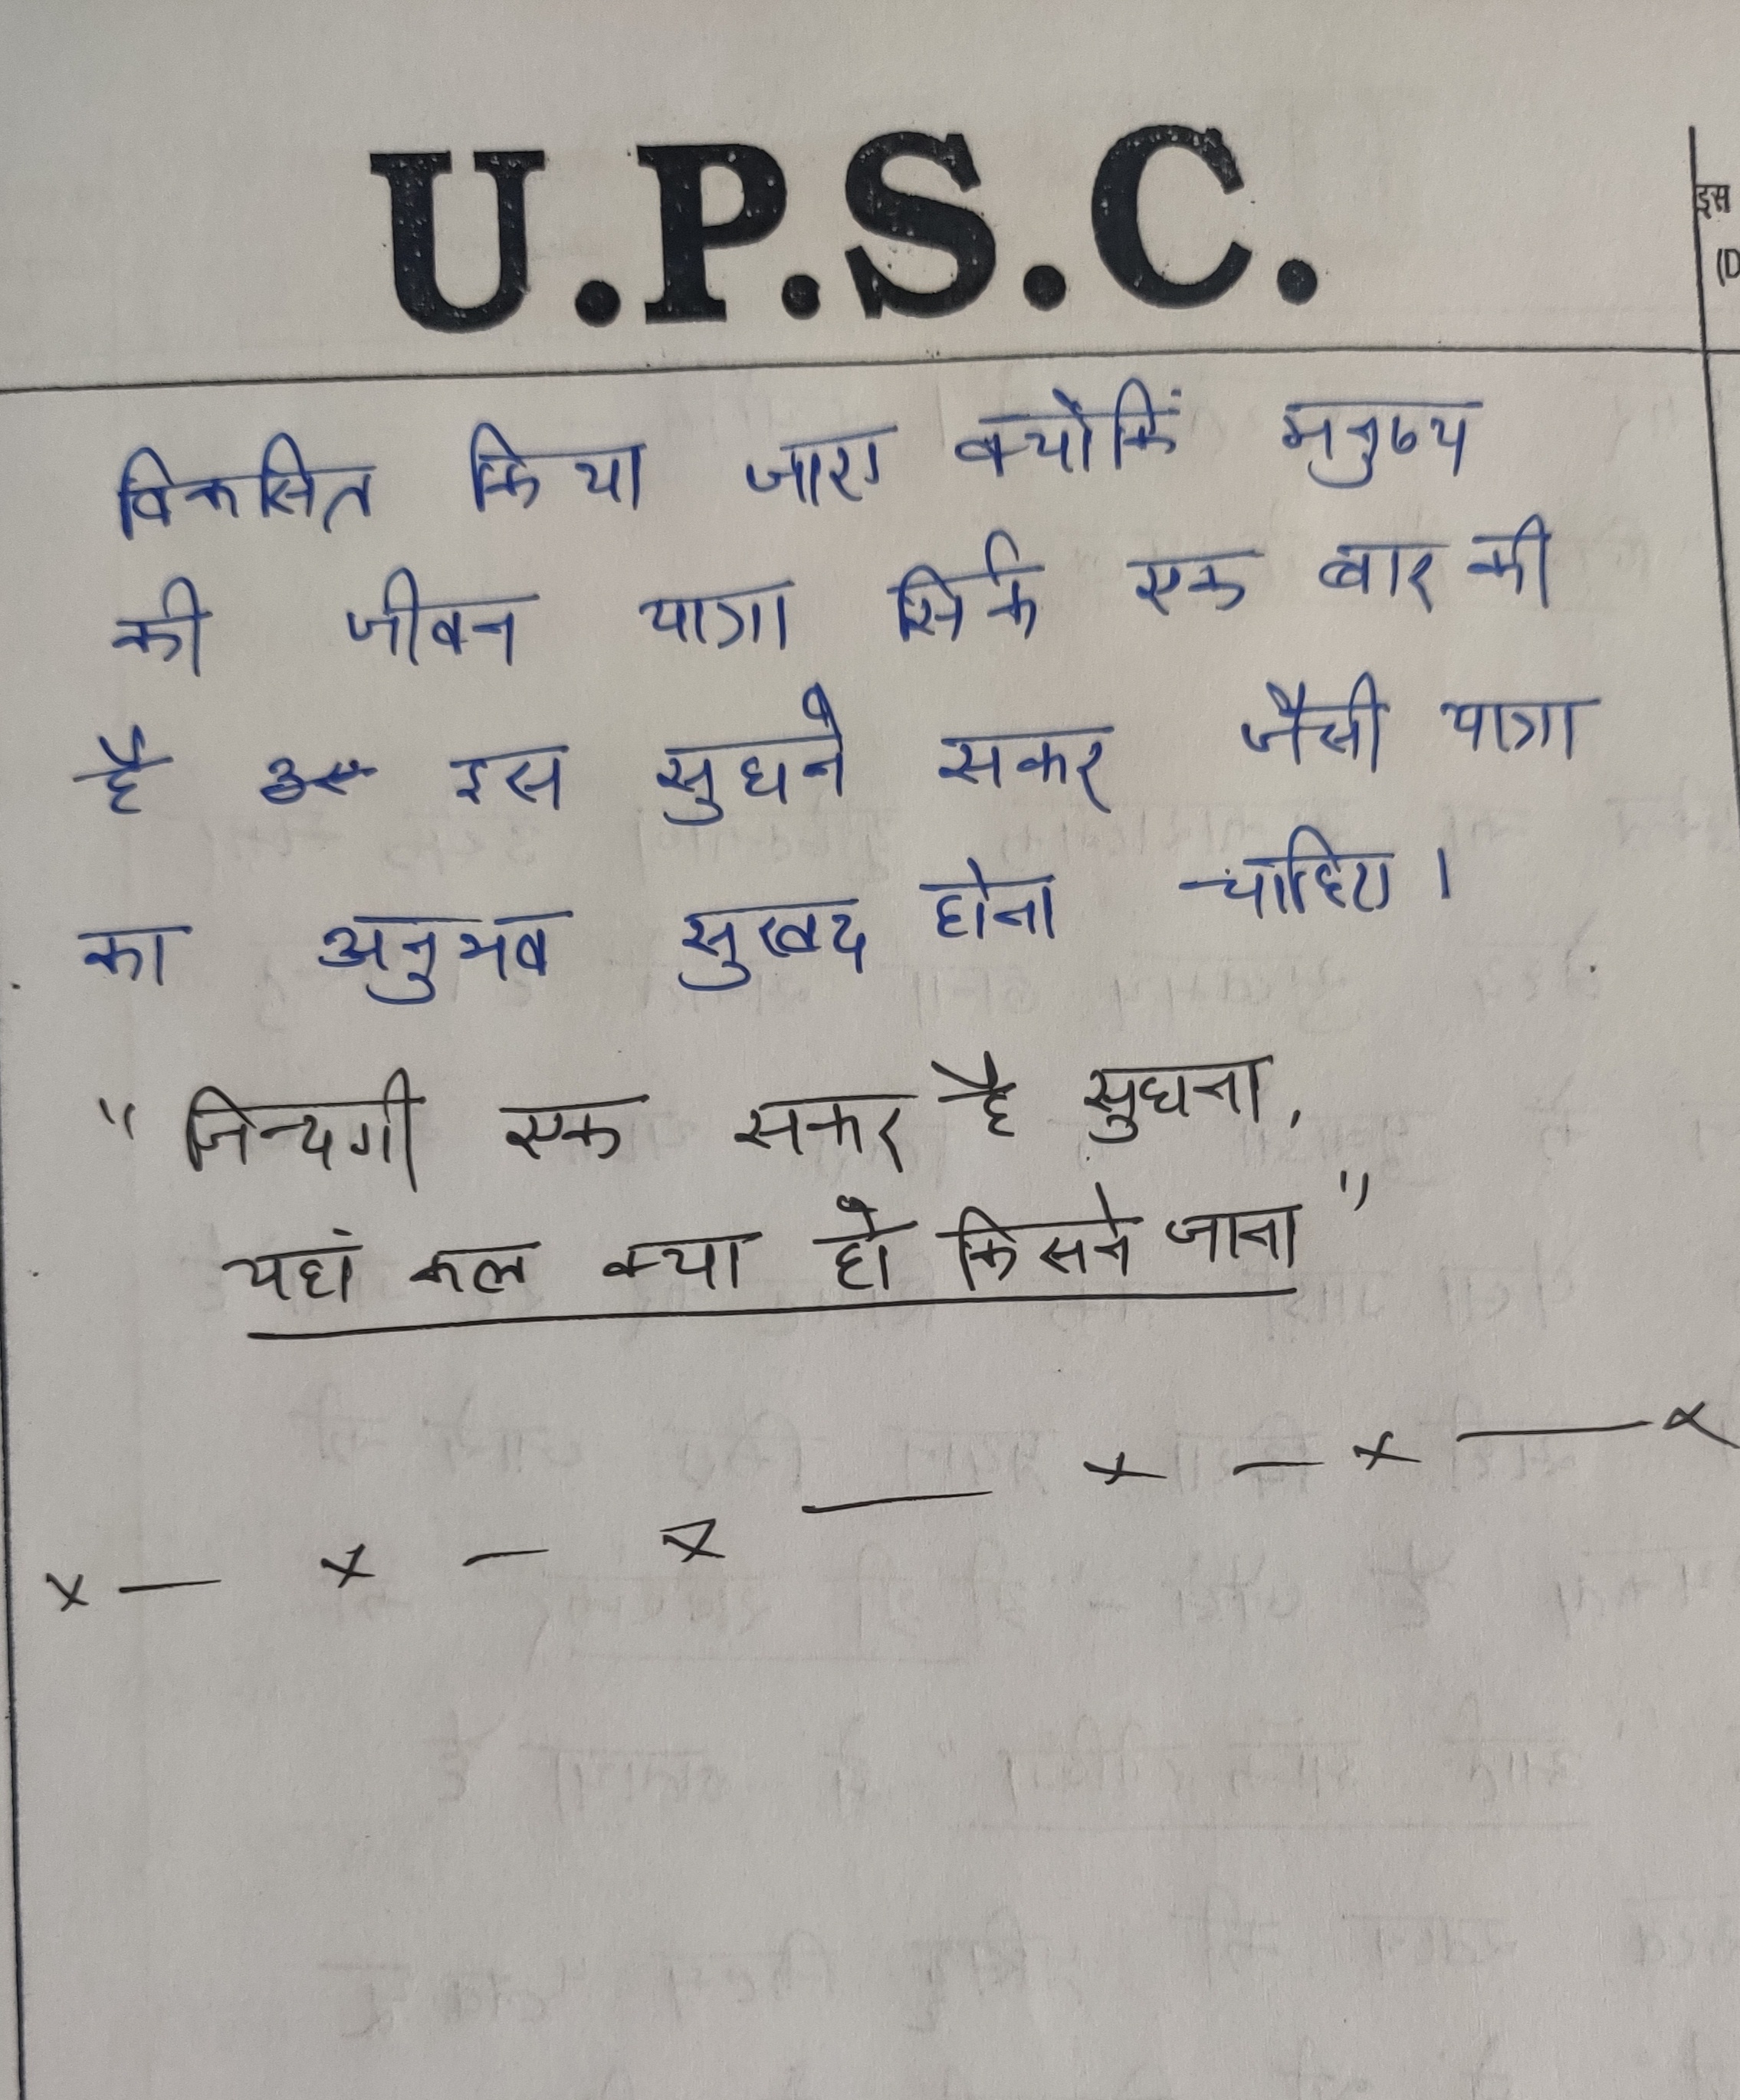 U.P.S.C.
इस
(D
विकसित किया जाए क्योंकिं मनुष्य
की जीवन यात्रा सिर्फ एक बार की
है इस सुघने सफर जैसी यात्रा
का अनुभव सुखद होना चाहिए।
" जिन्दगी एक सफर है सुघना,
यहां कल क्या हो किसने जाना "
x — x — x — x — x — x